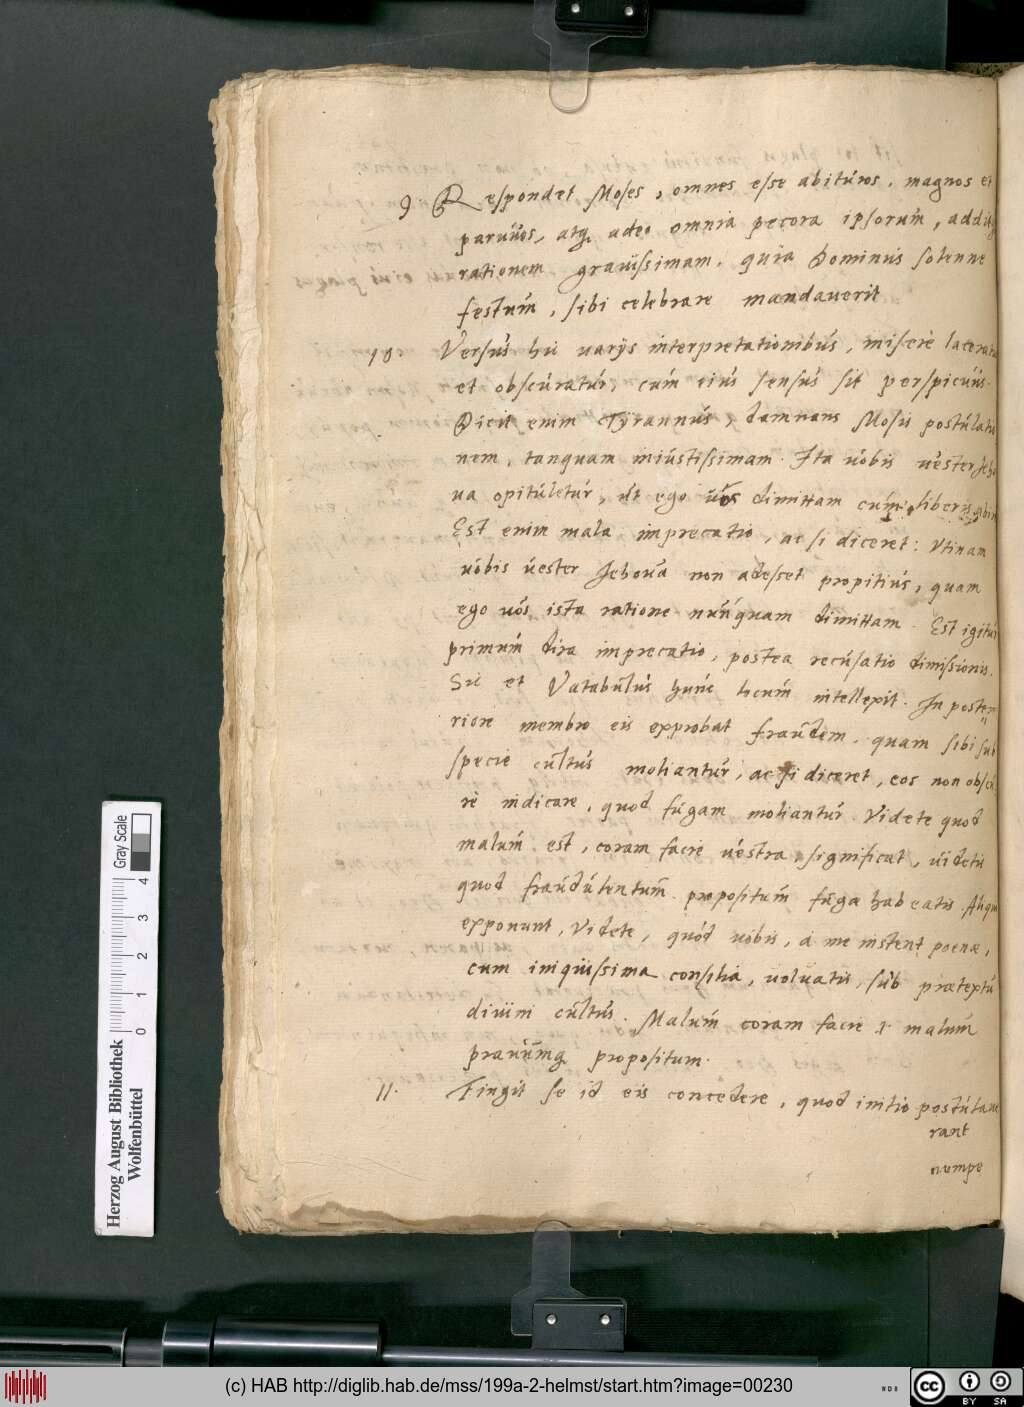 9. Respondet Moses, omnes esse abituros, magnos et
paruos, atq. adeo omnia pecora ipsorum, additq
rationem grauissimam, quia Dominus solenne
festum, sibi celebrare mandauerit
10. Versus hic varijs interpretationibus, miserè laceratur
et obscuratur, cum eius sensus sit perspicuus.
Dicit enim Tyrannus, damnans Mosis postulatio
nem, tanquam iniustissimam. Ita vobis vester Jeho
ua opituletur, ut ego vos dimittam cum liberis
Est enim mala imprecatio, ac si diceret: Vtinam
vobis vester Jehoua non adesset propitius, quam
ego vos ista ratione nunquam dimittam. Est igitur
primum dira imprecatio, postea recusatio dimissionis.
Sic et Vatablus hunc locum intellexit. In poste
riore membro eis exprobat fraudem, quam sibi sub
specie cultus moliantur, ac si diceret, eos non obscu
rè indicare, quod fugam moliantur. Videte quod
malum est, coram facie vestra, significat, videtis
quod fraudulentum propositum fuga habeatis. Aliqui
exponunt, Videte, quod vobis, à me instent poenæ,
cum iniquissima consilia, voluatis, sub prætextu
diuini cultus. Malum coram facie .i. malum
prauumq propositum.
11. Fingit se id eis concedere, quod initio postulaue
rant
nempe
Herzog August Bibliothek
Wolfenbüttel
0 1 2 3 4
Gray Scale
(c) HAB http://diglib.hab.de/mss/199a-2-helmst/start.htm?image=00230
BY SA